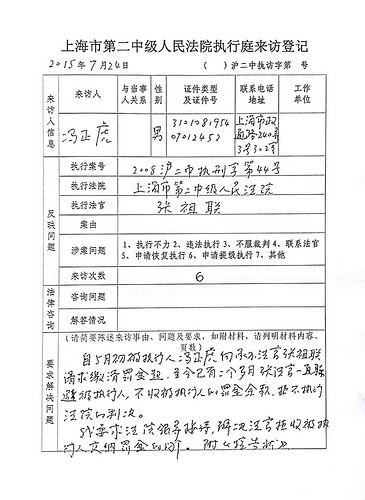 上海市第二中级人民法院执行庭来访登记
2015年7月24日 ( )沪二中执访字第 号
来访人信息
来访人 与当事人关系 性别 证件类型及证件号 联系电话地址 工作单位
冯正虎 男 310108195407012452 上海市政通路240弄3号302室
反映问题
执行案号 2008沪二中执刑字第44号
执行法院 上海市第二中级人民法院
执行法官 张祖联
案由
涉案问题 1、执行不力 2、违法执行 3、不服裁判 4、联系法官
5、申请恢复执行 6、申请提级执行 7、其他
来访次数 6
法律咨询
咨询问题
解答情况
要求解决问题
(请简要陈述来访事由、问题及要求,如附材料,请列明材料内容、
页数)
自5月初被执行人冯正虎向承办法官张祖联
请求缴清罚金起,至今已有二个多月张法官一直躲
避被执行人,不收被执行人的罚金余款,拒不执行
法院的判决。
我要求法院领导接待,解决法官拒收被执
行人交纳罚金的问题。附《控告状》